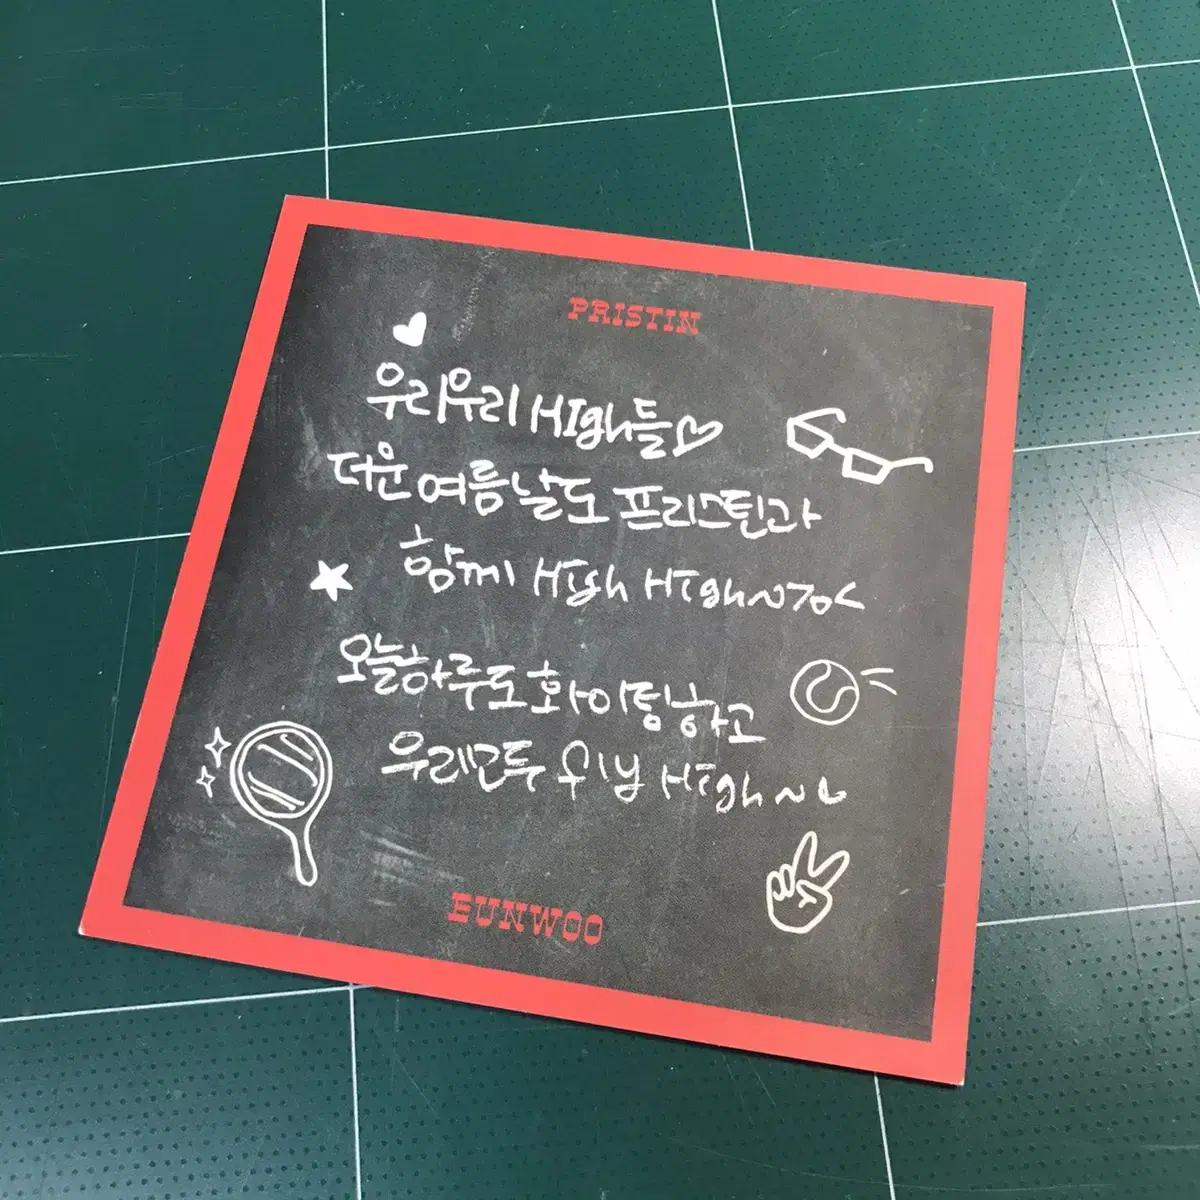 PRISTIN
우리우리 HIgh들♡
더운 여름날도 프리스틴과
함께 HIgh HIgh~
오늘하루도 화이팅하고
우리모두 HIgh~
EUNWOO